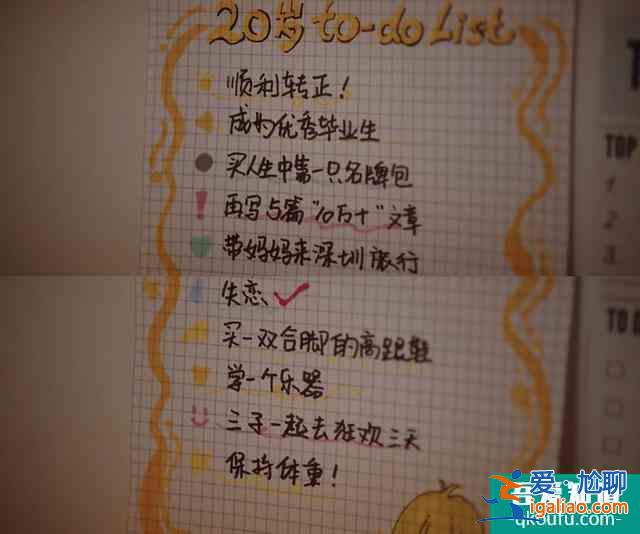 20岁 to-do List
顺利转正！
成为优秀毕业生
买人生中第一只名牌包
再写5篇“10万+”文章
带妈妈来深圳旅行
失恋
买一双合脚的高跟鞋
学一个乐器
三子一起去狂欢三天
保持体重！
TOP
1
2
3
TO D
爱尬聊
igaliao.com
qk5ufu.com